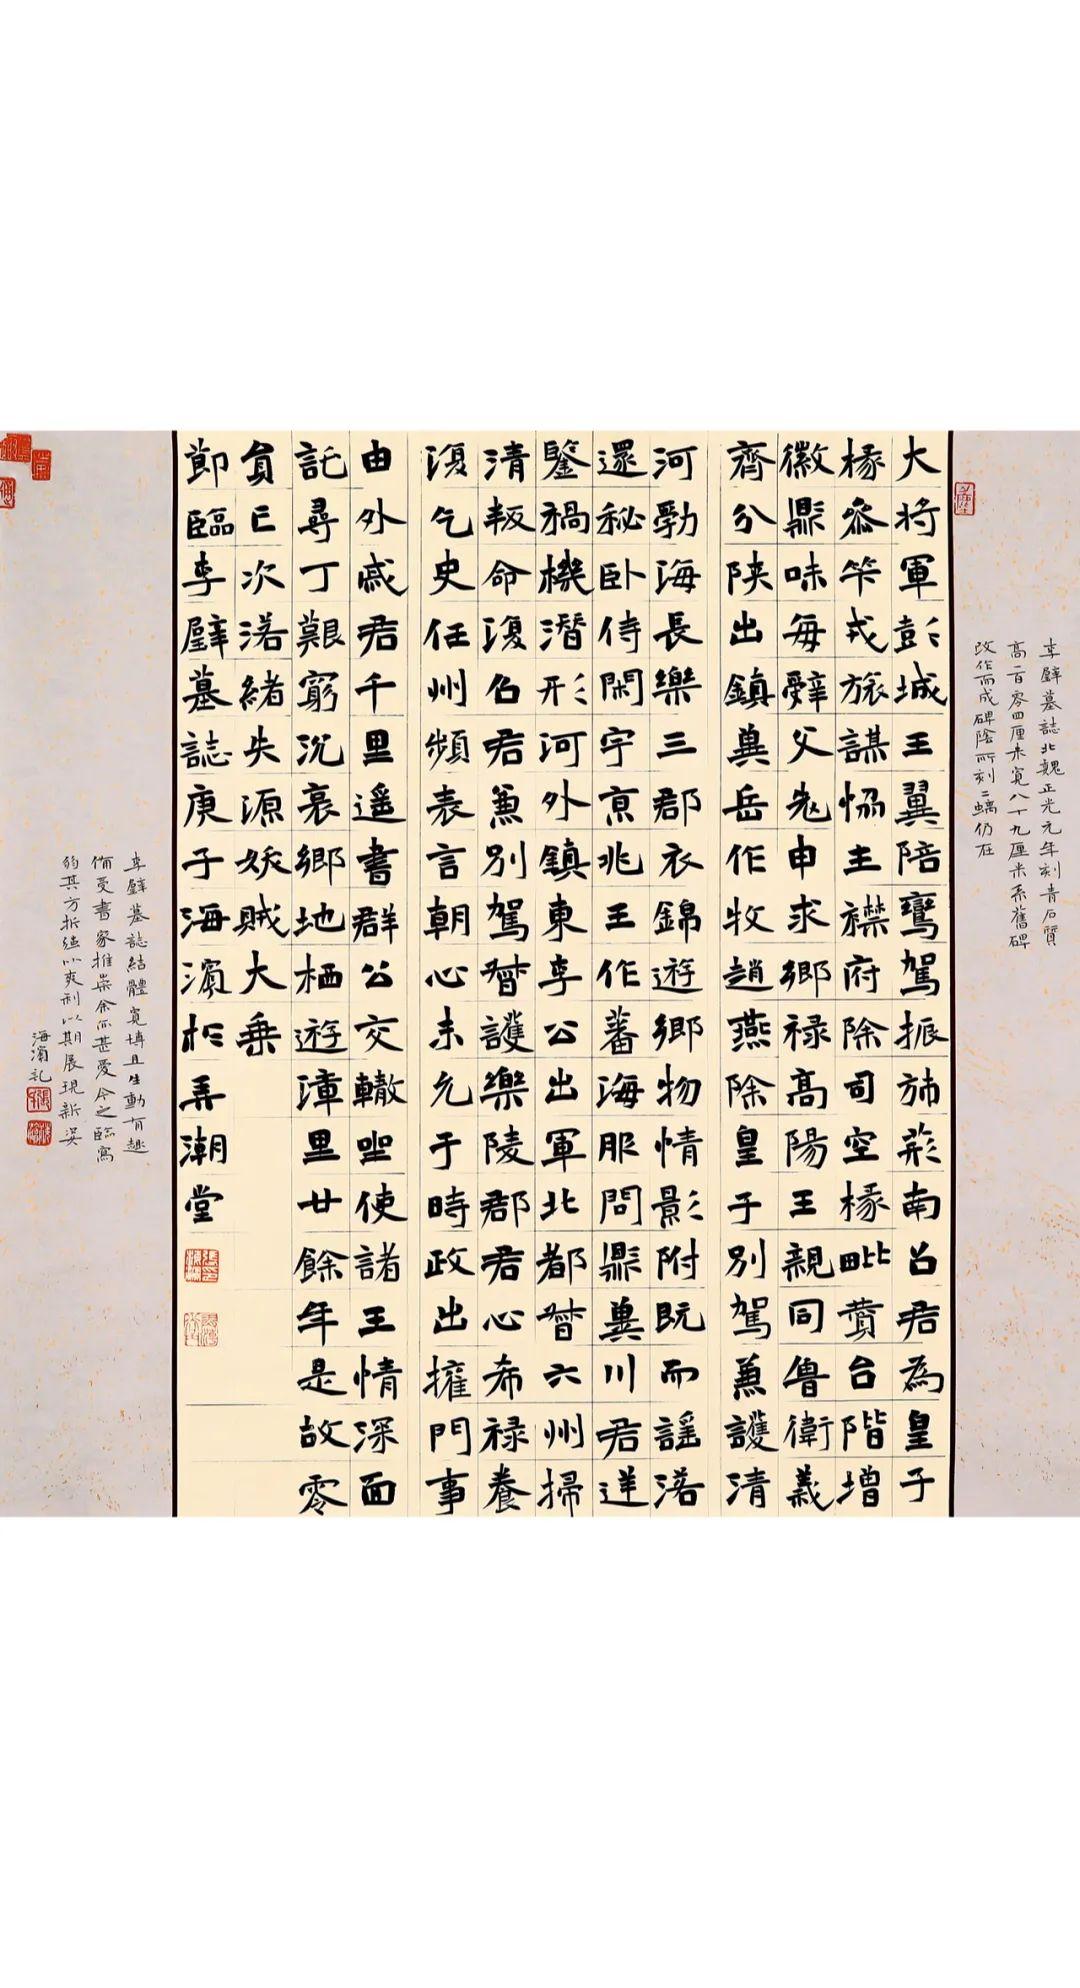 李璧墓誌北魏正光元年刻青石質
高二百零四厘米寬八十九厘米系舊碑
改作而成碑陰所刻二螭仍在
大將軍彭城王翼陪鸞駕振斾荊南召君為皇子
椽參竿戎旅謀恊主襟府除司空椽毗贊台階增
徽鼎味每辭父老申求鄉禄高陽王親同魯衛義
齊分陕出鎮冀岳作牧趙燕除皇子別駕兼護清
河勃海長樂三郡衣錦遊鄉物情影附既而謠落
還秘卧侍閑宇京兆王作蕃海服問鼎冀川君逆
鑒禍機潛形河外鎮東李公出軍北都暫六州掃
清叛命復召君兼別駕暫護樂陵郡君心希禄養
復乞史任州頻表言朝心未允于時政出擁門事
由外戚君千里遥書群公交轍坐使諸王情深面
託尋丁艱窮沉哀鄉地栖遊漳里廿餘年是故零
負亡次落緒失源妖賊大乗
節臨李璧墓誌庚子海濱於弄潮堂
李璧墓誌結體寬博且生動有趣
備受書家推崇余亦甚愛今之臨寫
約其方折強以爽利以期展現新姿
海濱記